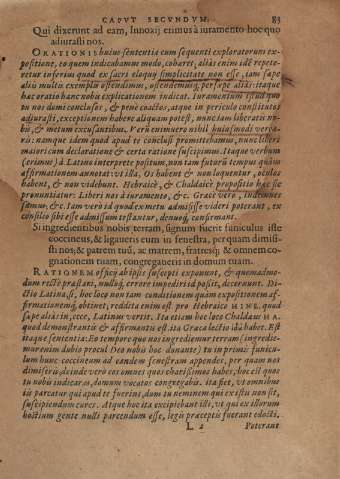 CAPVT SECVNDVM. 83
Qui dixerunt ad eam, Innoxij erimus à iuramento hoc quo
adiurasti nos.
ORATIONIS huius sententiā cum sequenti exploratorum ex-
positione, eo quem indicabamus modo, cohæret, alias enim idē repete-
retur inferius quod ex sacri eloquij simplicitate non esse, tam sæpe
alias multis exemplis ostendimus, ostendemusq; persæpe alias: itaque
hæc oratio hanc nobis explicationem indicat. Iuramentum istud quo
tu nos domi conclusos, & penè coactos, atque in periculo constitutos
adiurasti, exceptionem habere aliquam potest, nunc tam liberati no-
bis, & metum excusantibus. Verū enimuero nihil huiusmodi verba-
ris: namque idem quod apud te conclusi promittebamus, nunc liberè
maiori cum declaratione & certa ratione suscipimus. Itaque verbum
(erimus) à Latino interprete positum, non tam futurū tempus quàm
affirmationem annotat: vt illa. Os habent & non loquuntur, oculos
habent, & non videbunt. Hebraicè, & Chaldaicè propositio hæc sic
pronuntiatur: Liberi nos à iuramento, &c. Græcè verò, indemnes
sumus, &c. Iam verò id quod ex metu admisisse videri poterant, ex
consilio sibi esse admissum testantur, denuoq; confirmant.
Si ingredientibus nobis terram, signum fuerit funiculus iste
coccineus, & ligaueris eum in fenestra, per quam dimisi-
sti nos: & patrem tuū, ac matrem, fratresq; & omnem co-
gnationem tuam, congregaueris in domum tuam.
RATIONEM officij ab ipsis suscepti exponunt, & quemadmo-
dum rectè præstani, nullúq, errore impediri id possit, decernunt. Di-
ctio Latina si, hoc loco non tam conditionem quàm expositionem af-
firmationemq́, obtinet, reddita enim est pro Hebraico HINE. quod
sæpe aliàs in, ecce, Latinus vertit. Ita etiam hoc loco Chaldæus HA.
quod demonstrantis & affirmantis est. ita Græca lectio ἰδὰ habet. Est
itaque sententia: Eo tempore quo nos ingrediemur terram (ingredie-
mur enim dubio procul Deo nobis hoc donante) tu in primis funicu-
lum hunc coccineum ad eandem fenestram appendes, per quam nos
dimiseris, deinde vero eos omnes quos charissimos habes, hoc est quos
tu nobis indicaras, domum vocatos congregabis. ita fiet, vt omnibus
iis parcatur qui apud te fuerint, dum tu neminem qui ex istis non sit,
suscipiendum cures. Atque hoc ita excipiebant illi, vt qui ex illorum
hostium gente nulli parcendum esse, legis præceptis fuerant edocti.
L 2 Poterant